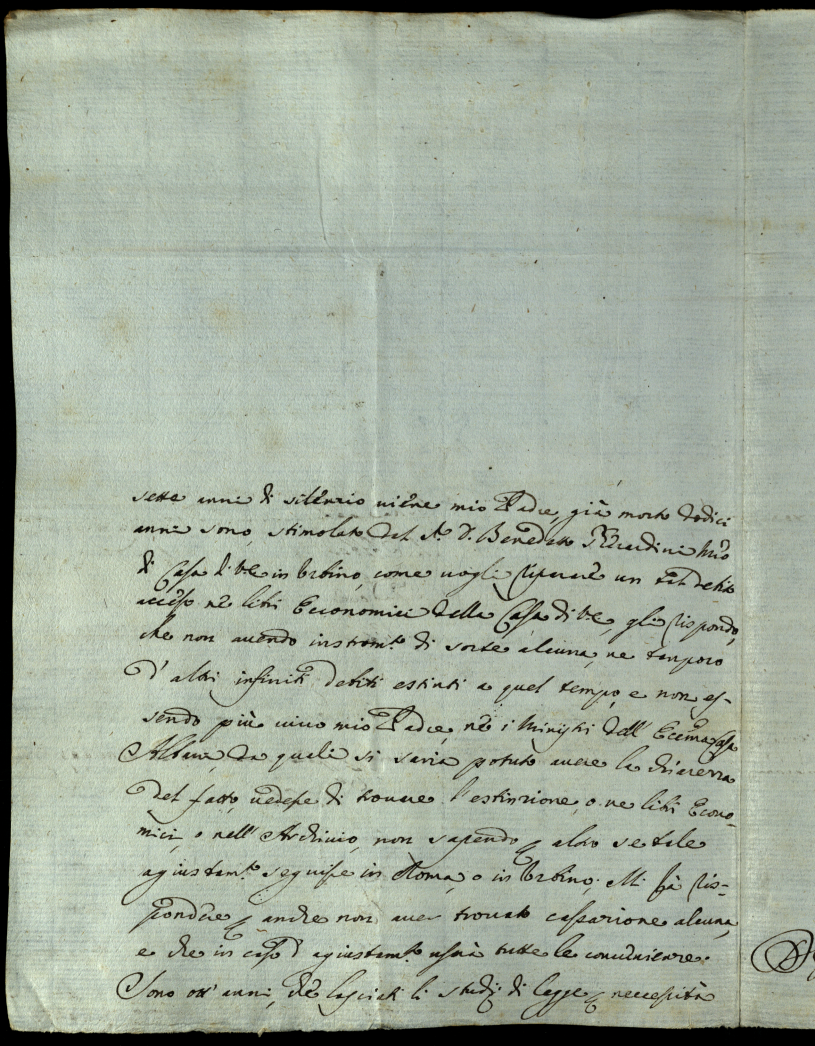 sette anni di silenzio viene mio Padre, già morto dodici
anni sono, stimolato dal Sr. D. Benedetto mro
di Casa di V.E. in Urbino, come vogli riparare un tal debito
acceso nè libri Economici della Casa di V.E., gli rispondo,
che non avendo instromto. di sorte alcuna, ne tanpoco
d'altri infiniti debiti estinti a quel tempo, e non es-
sendo più vivo mio Padre, nè i Ministri dell' Eccma. Casa
Albani, da quali si saria potuto avere la chiarezza
del fatto, vedesse di trovare l'estinzione, o ne libri Econo-
mici, o nell' Archivio, non sapendo per altro se tale
agiustamto. seguisse in Roma, o in Urbino. Mi fà ris-
pondere per anche non aver trovato cassazione alcuna,
e che in caso d'agiustamto. userà tutte le convenienze.
Sono ott' anni, che lasciati li studj di legge per necessità